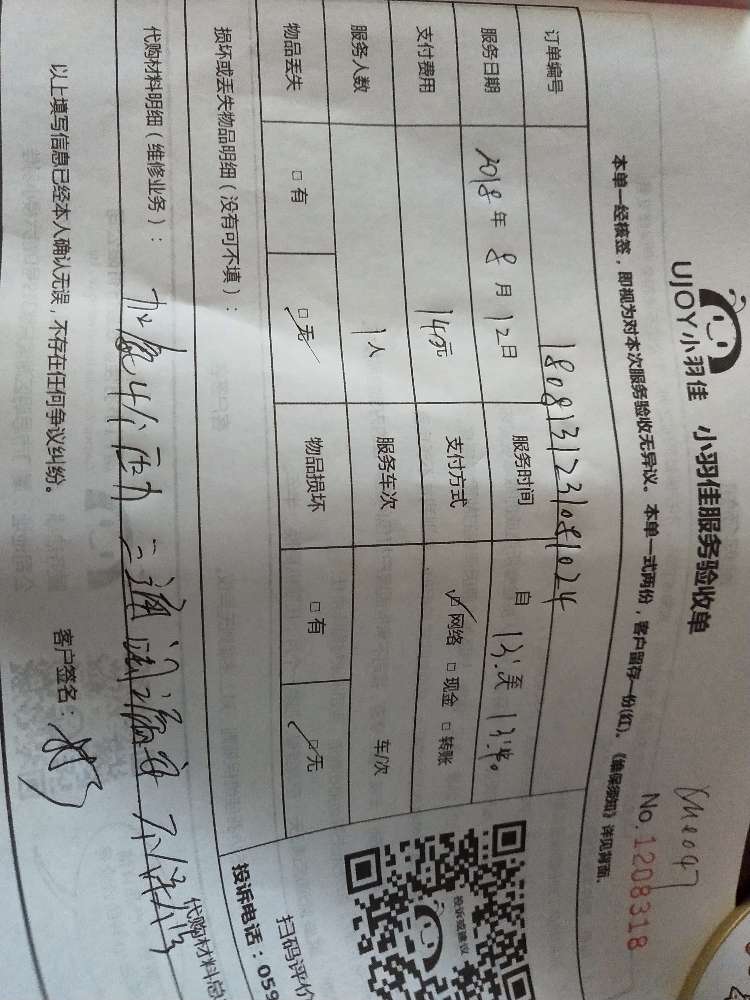 UJOY小羽佳 小羽佳服务验收单
No.1208318
本单一经核签，即视为对本次服务验收无异议。本单一式两份，客户留存一份(红)。《维保须知》详见背面。
订单编号 1808131231081024
服务日期 2018年8月12日 服务时间 自 13: 至 13:40
支付费用 140元 支付方式 ☑网络 □现金 □转账
服务人数 1人 服务车次 车/次
物品丢失 □有 ☑无 物品损坏 □有 ☑无
损坏或丢失物品明细（没有可不填）：
代购材料明细（维修业务）： 加氟4个压力
代购材料总
以上填写信息已经本人确认无误，不存在任何争议纠纷。
客户签名：
投诉或建议
扫码评价
投诉电话：059